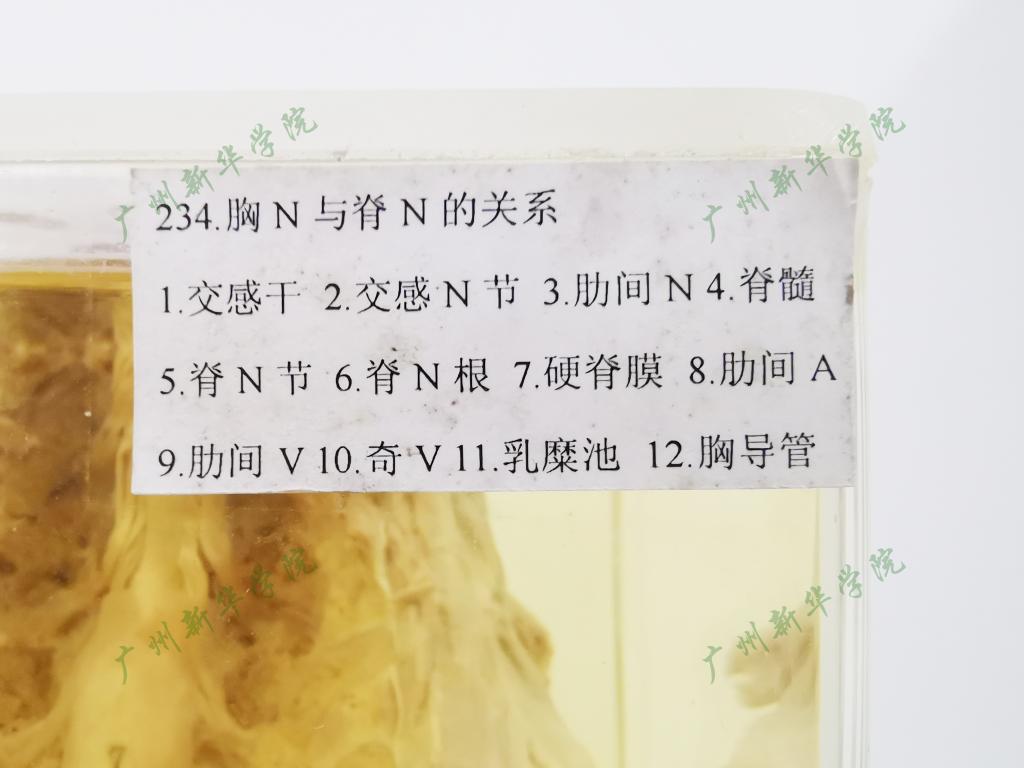 234.胸 N 与脊 N 的关系
1.交感干 2.交感 N 节 3.肋间 N 4.脊髓
5.脊 N 节 6.脊 N 根 7.硬脊膜 8.肋间 A
9.肋间 V 10.奇 V 11.乳糜池 12.胸导管
广州新华学院
广州新华学院
广州新华学院
广州新华学院